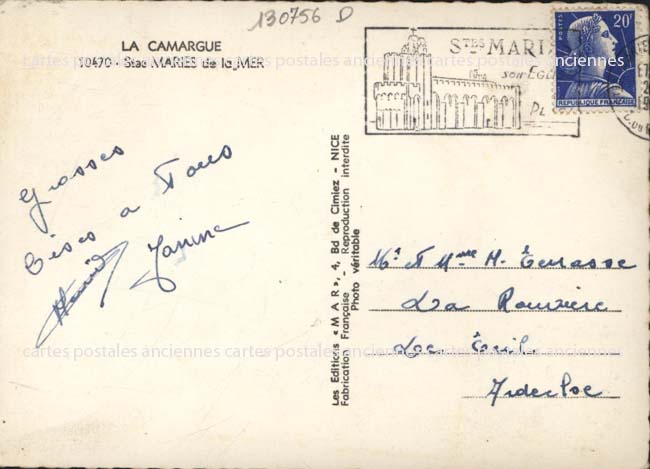 130756 D
LA CAMARGUE
10470 - Stes MARIES de la MER
STES MARI
SON EGL
PL
POSTES
20F
REPUBLIQUE FRANÇAISE
Grosses
Bises a Tous
Janine
Les Editions « M A R », 4, Bd de Cimiez - NICE
Fabrication Française - Reproduction interdite
Photo véritable
Mr et Mme H. Terrasse
La Rouvière
Ardèche
cartes postales anciennes cartes postales anciennes cartes postales anciennes
cartes postales anciennes cartes postales anciennes cartes postales anciennes